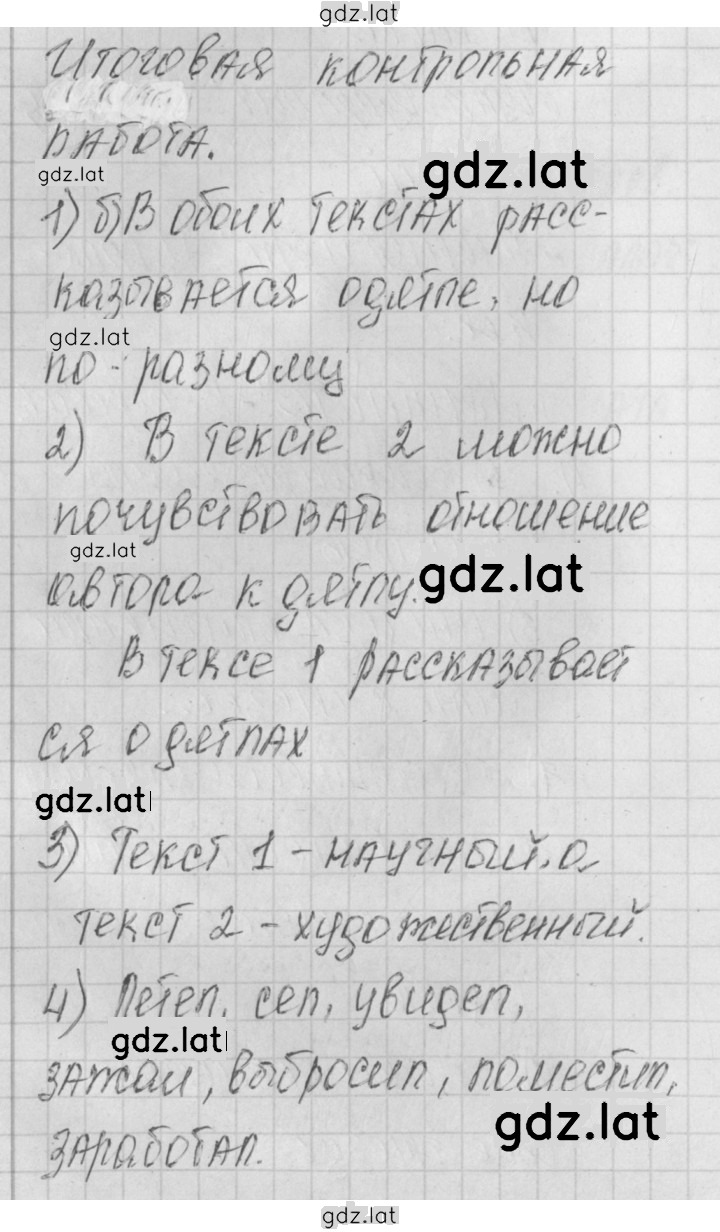 gdz.lat
Итоговая контрольная
работа.
gdz.lat
gdz.lat
1) б) В обоих текстах расс-
казывается о дятле, но
gdz.lat
по-разному
2) В тексте 2 можно
почувствовать отношение
gdz.lat
автора к дятлу.
gdz.lat
В тексе 1 рассказывает
ся о дятлах
gdz.lat
3) Текст 1 - научный, а
текст 2 - художественный.
4) Летел, сел, увидел,
gdz.lat
зажал, выбросил, поместил,
gdz.lat
заработал.
gdz.lat